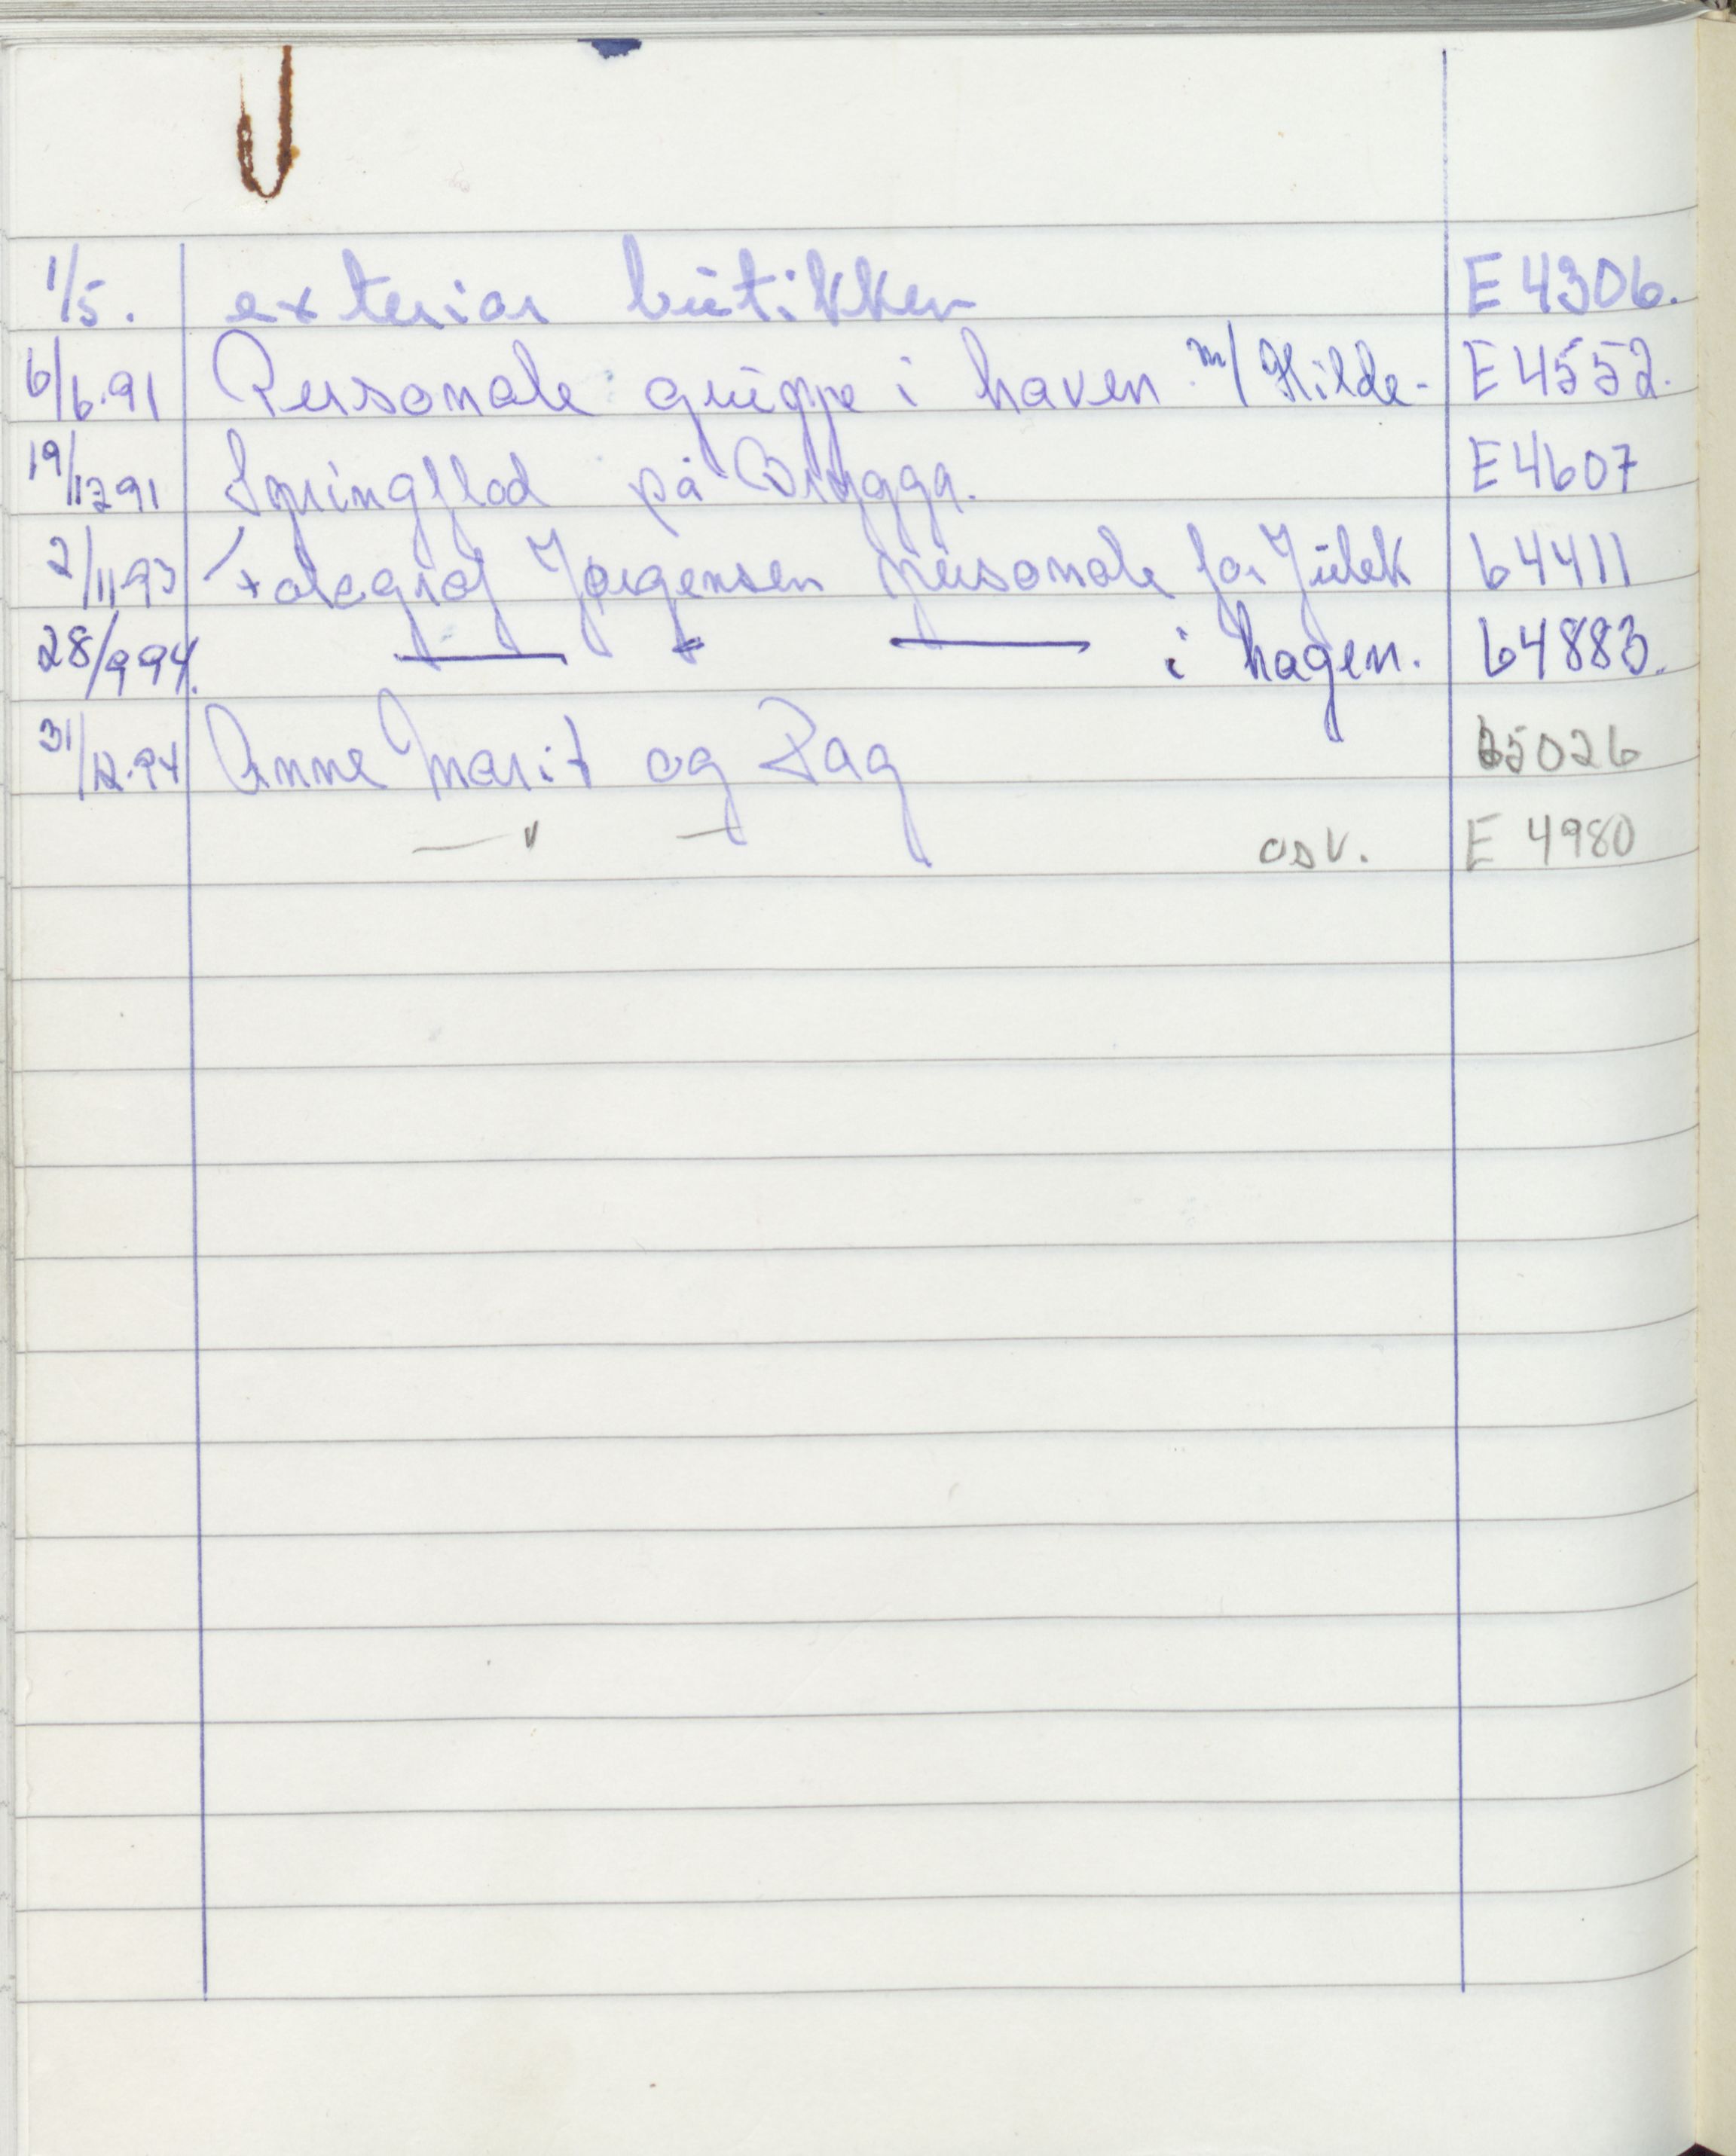 1/5. exteriør butikken E 4306.
6/6.91 Personale gruppe i haven m/ Hilde- E 4552.
19/12 91 Springflod på Brygga. E 4607
2/11 93 Fotograf Jørgensen personale for Julek 64411
28/9 94. — " — i hagen. 64883.
31/12.94 Anne Marit og Dag 65026
— " — osv. E 4980